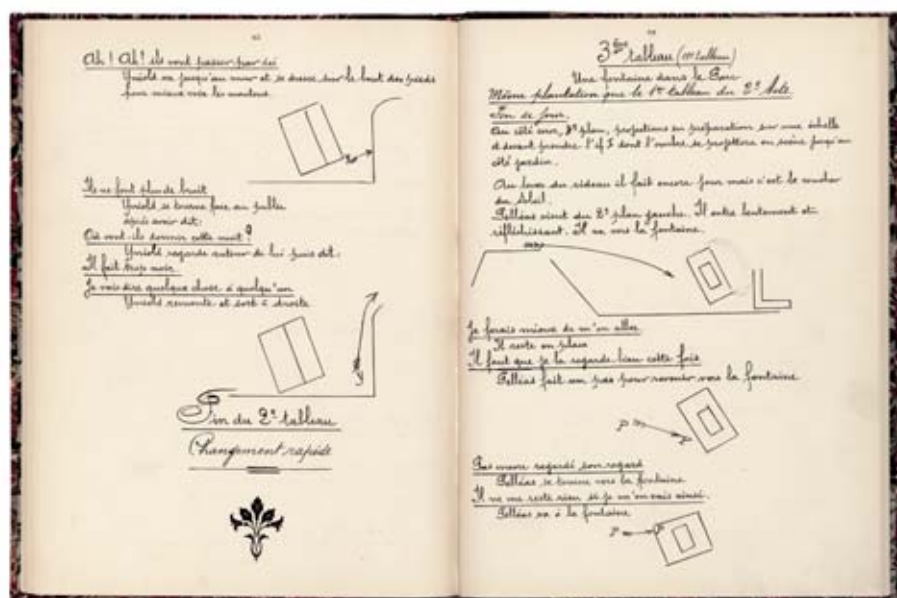 Ah ! Ah ! ils vont passer par ici
Yniold va jusqu'au mur et se dresse sur le bout des pieds
pour mieux voir les moutons.
Ils ne font plus de bruit
Yniold se tourne face au public
après avoir dit:
Où vont-ils dormir cette nuit ?
Yniold regarde autour de lui puis dit:
Il fait trop noir.
Je vais dire quelque chose à quelqu'un
Yniold remonte et sort à droite
y
Fin du 2e tableau
Changement rapide
3ème tableau
Une fontaine dans le Parc
Même plantation que le 1er tableau du 2e Acte.
Fin de jour.
Au côté cour, plan, projections en préparation sur une échelle
et devant prendre l'if I dont l'ombre se projettera en scène jusqu'au
côté jardin.
Au lever du rideau il fait encore jour mais c'est le coucher
du Soleil.
Pelléas vient du 2e plan gauche. Il entre lentement et
réfléchissant. Il va vers la fontaine.
Je ferais mieux de m'en aller
Il reste en place
Il faut que je la regarde bien cette fois
Pelléas fait un pas pour revenir vers la fontaine
P P
Pas encore regardé son regard
Pelléas se tourne vers la fontaine
Il ne me reste rien si je m'en vais ainsi.
Pelléas va à la fontaine
P P